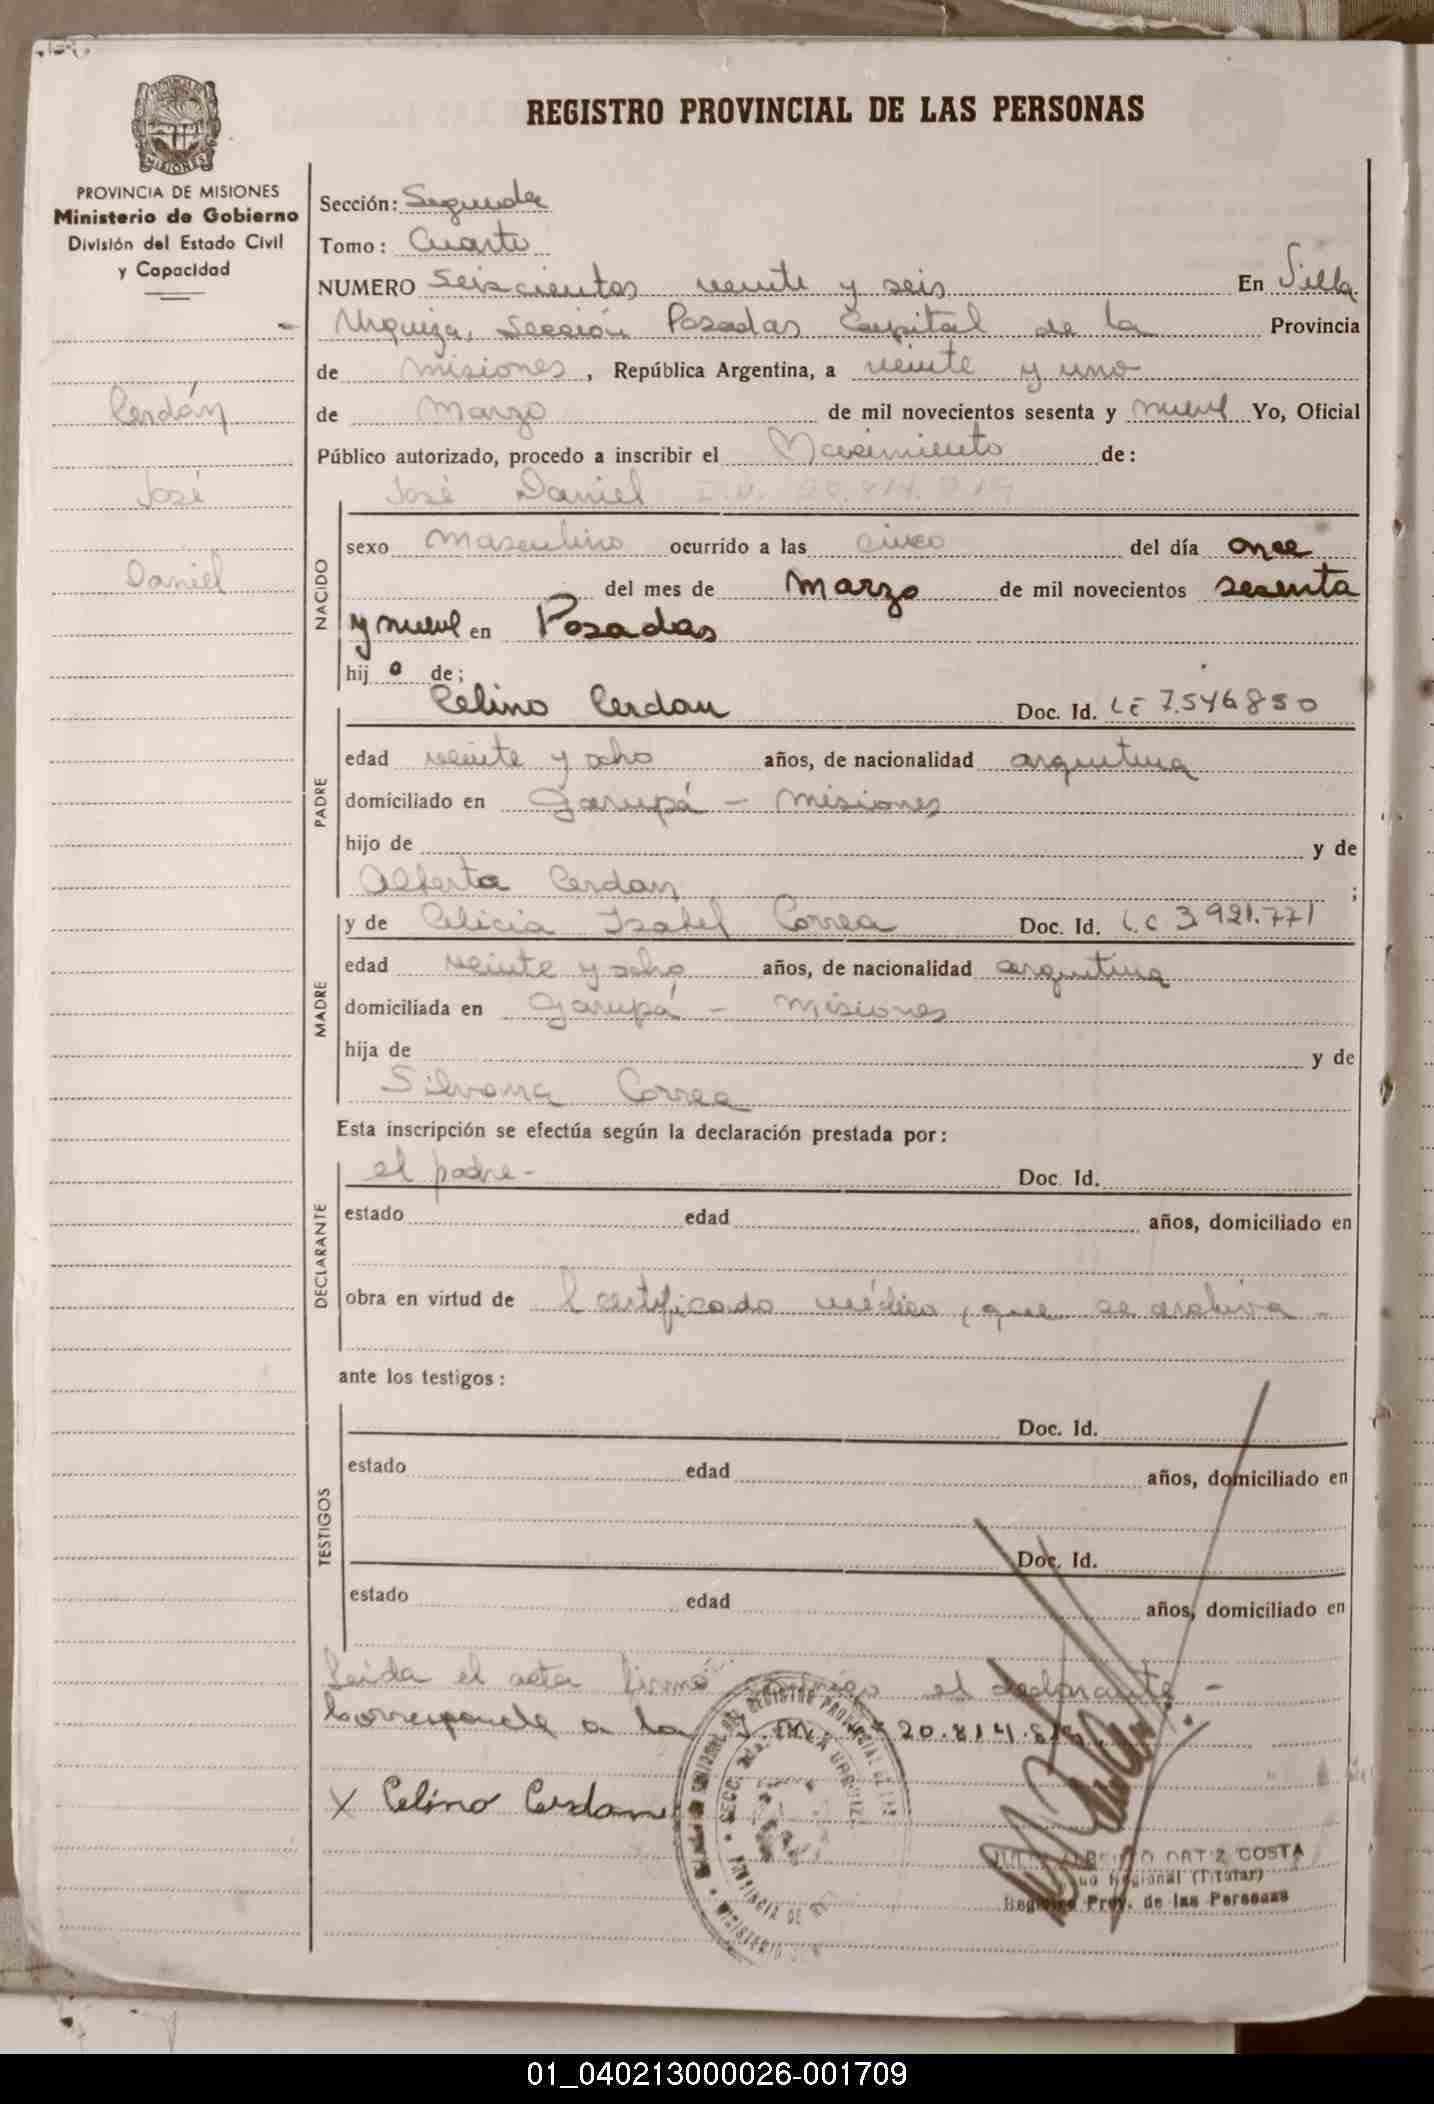 REGISTRO PROVINCIAL DE LAS PERSONAS
MISIONES
PROVINCIA DE MISIONES
Ministerio de Gobierno
División del Estado Civil
y Capacidad
Cerdán
José
Daniel
Sección: Segunda
Tomo: Cuarto
NUMERO seiscientos veinte y seis En Villa
Urquiza, Sección Posadas Capital de la Provincia
de Misiones, República Argentina, a veinte y uno
de Marzo de mil novecientos sesenta y nueve Yo, Oficial
Público autorizado, procedo a inscribir el Nacimiento de:
José Daniel
NACIDO
sexo Masculino ocurrido a las cinco del día once
del mes de Marzo de mil novecientos sesenta
y nueve en Posadas
hij o de;
PADRE
Celino Cerdan Doc. Id. LE 7.546850
edad veinte y ocho años, de nacionalidad argentina
domiciliado en Garupá - Misiones
hijo de y de
Alberta Cerdan ;
MADRE
y de Celicia Isabel Correa Doc. Id. L.C 3.921.771
edad veinte y ocho años, de nacionalidad argentina
domiciliada en Garupá - Misiones
hija de y de
Silvana Correa
Esta inscripción se efectúa según la declaración prestada por:
DECLARANTE
el padre - Doc. Id.
estado edad años, domiciliado en
obra en virtud de l certificado médico, que se archiva -
ante los testigos:
TESTIGOS
Doc. Id.
estado edad años, domiciliado en
Doc. Id.
estado edad años, domiciliado en
Leída el acta firmó conmigo el declarante -
Corresponde a la 20.814.819
X Celino Cerdan
ORTIZ COSTA
Regional (Titular)
Registro Prov. de las Personas
01_040213000026-001709